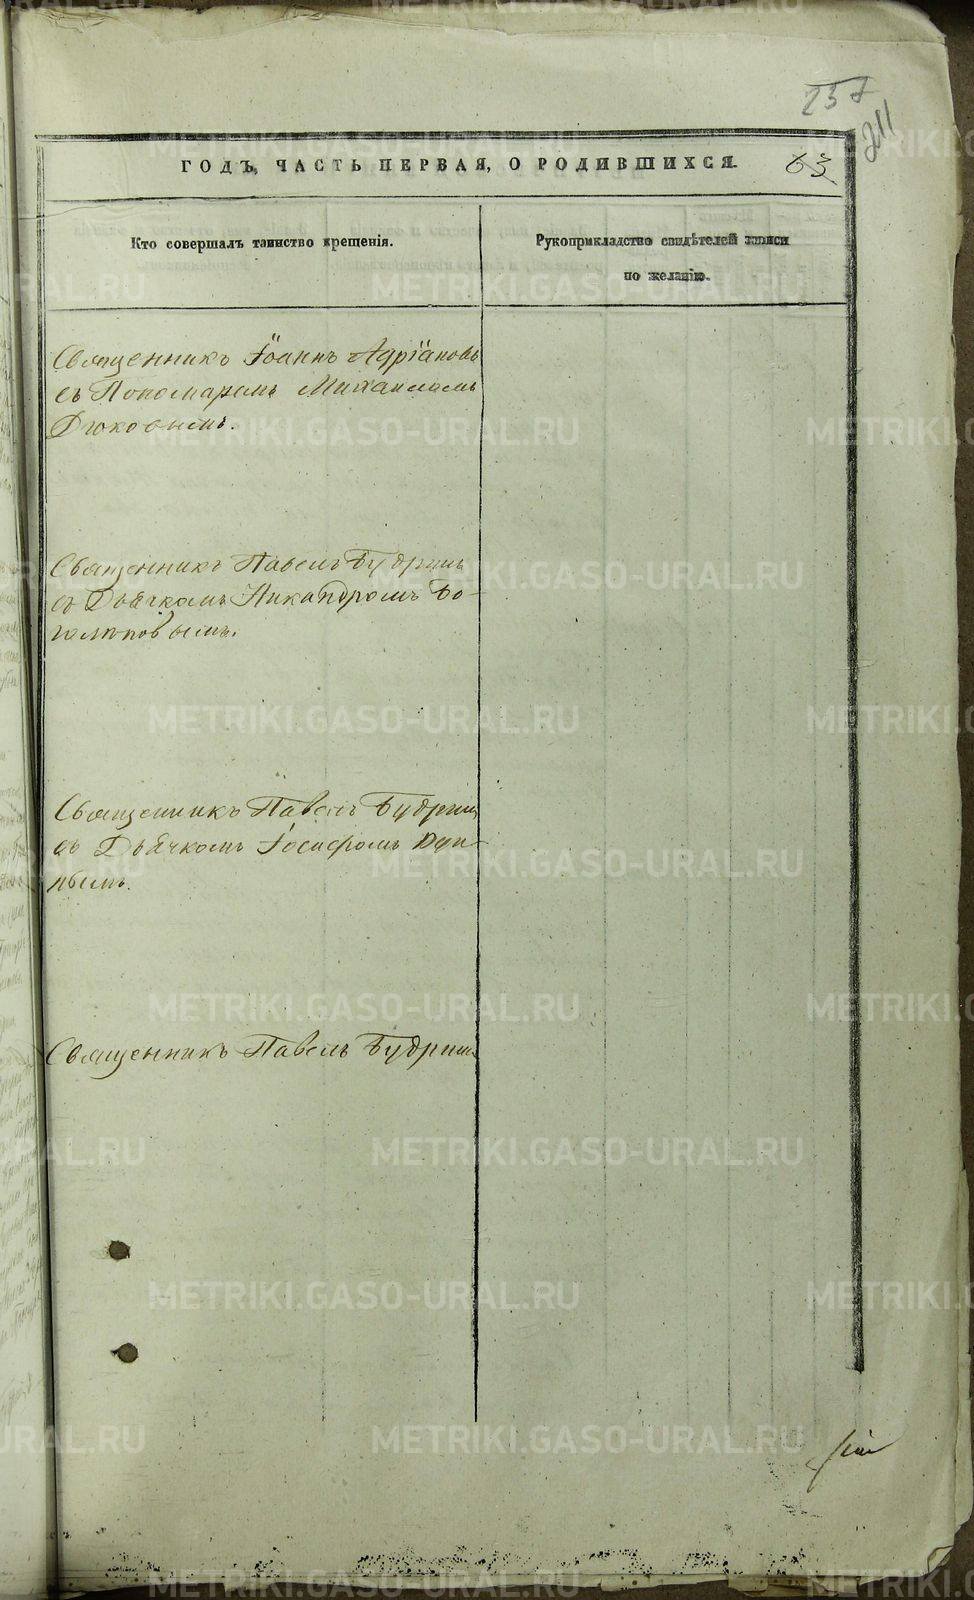 257
211
ГОДЪ, ЧАСТЬ ПЕРВАЯ, О РОДИВШИХСЯ.
63
Кто совершалъ таинство крещенія.
Рукоприкладство свидѣтелей записи
по желанію.
Священникъ Іоаннъ Адріановъ
съ Пономаремъ Михаиломъ
Дюковымъ.
Священникъ Павелъ Будринъ
съ Дьячкомъ Никандромъ Бо-
голѣповымъ.
Священникъ Павелъ Будринъ
съ Дьячкомъ Іосифомъ
нымъ.
Священникъ Павелъ Будринъ
METRIKI.GASO-URAL.RU